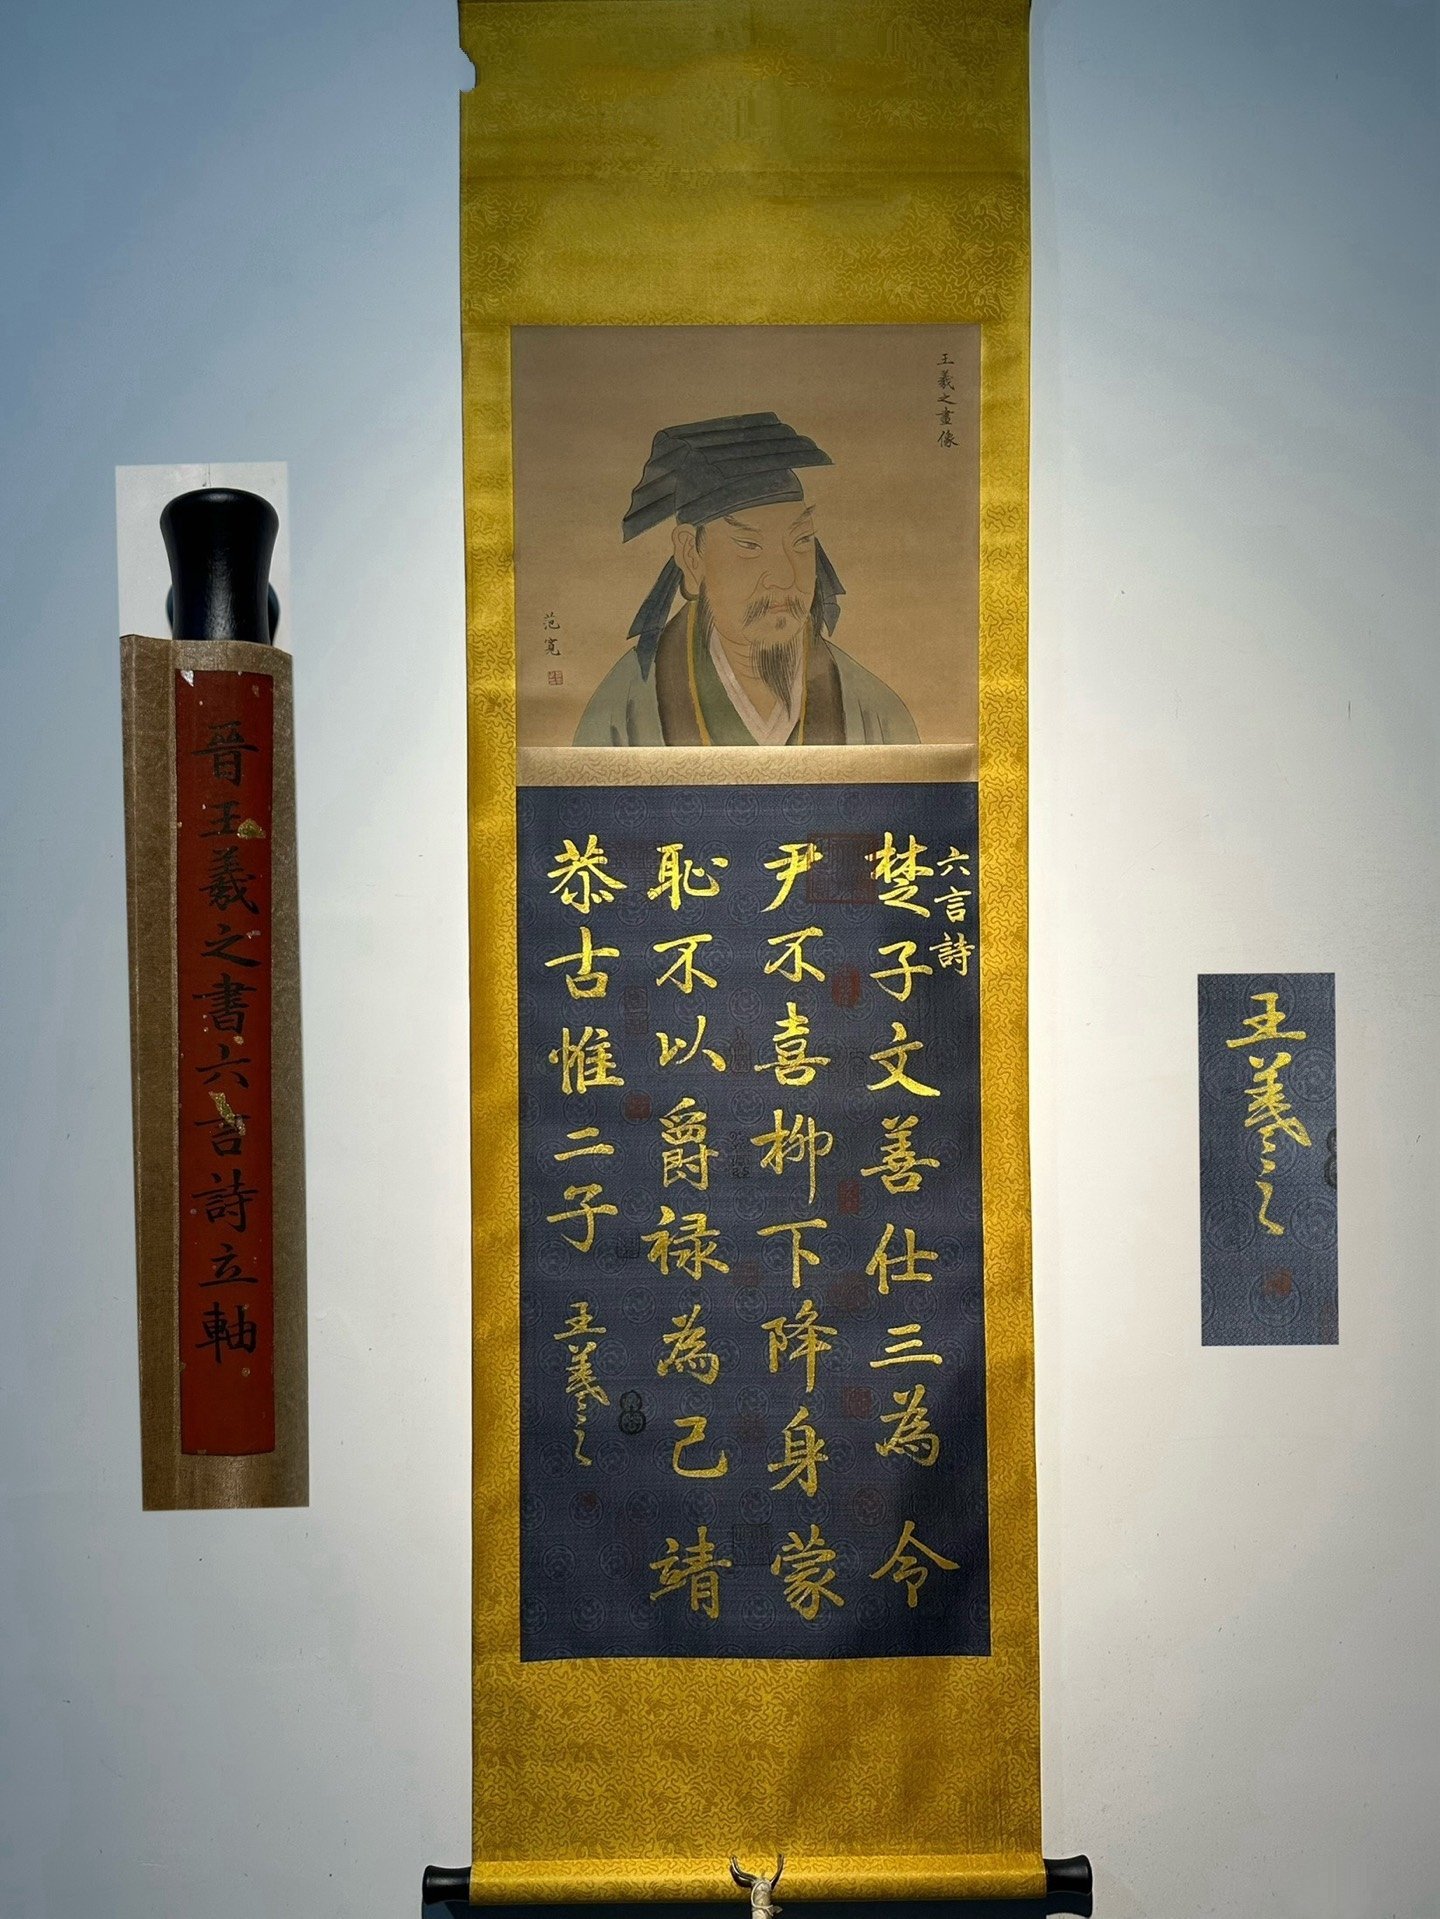 王羲之畫像
范寬
六言詩
楚子文善仕三為令
尹不喜柳下降身蒙
恥不以爵禄為己靖
恭古惟二子
王羲之
晉王羲之書六言詩立軸
王羲之